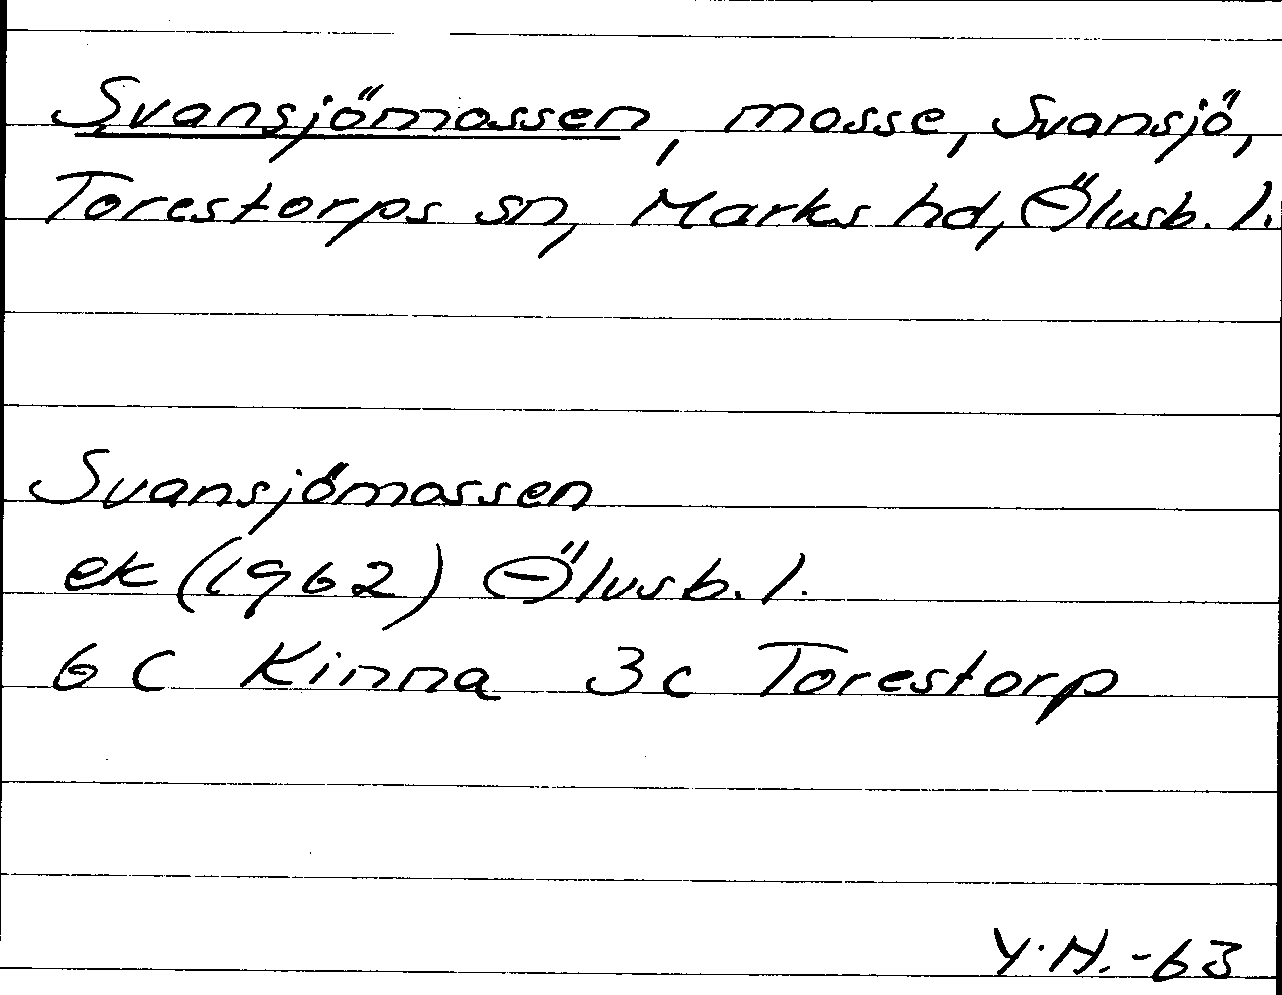 Svansjömossen, mosse, Svansjö,
Torestorps sn, Marks hd, Älvsb. l.
Svansjömossen
ek (1962) Älvsb. l.
6 C Kinna 3c Torestorp
Y.H.-63